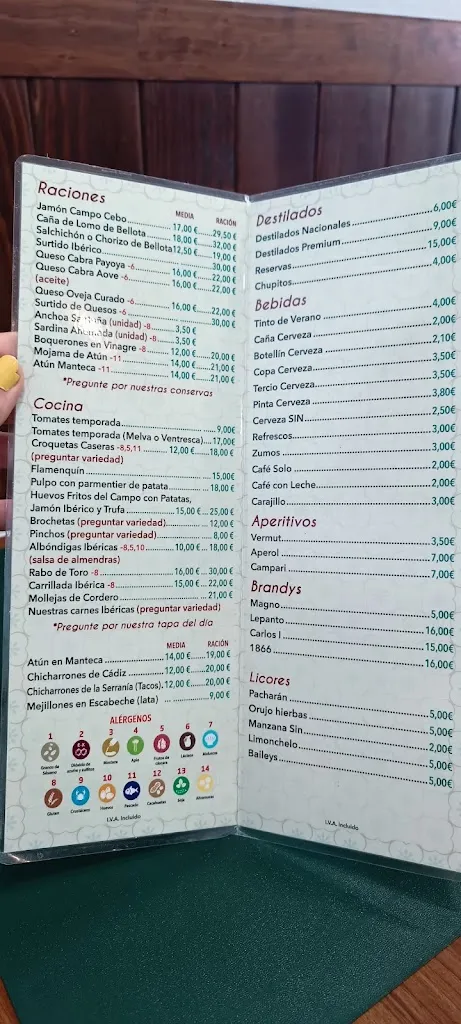 Raciones
MEDIA RACIÓN
Jamón Campo Cebo 17,00 € 29,50 €
Caña de Lomo de Bellota 18,00 € 32,00 €
Salchichón o Chorizo de Bellota 12,50 € 19,00 €
Surtido Ibérico 30,00 €
Queso Cabra Payoya -6 16,00 € 22,00 €
Queso Cabra Aove -6 16,00 € 22,00 €
(aceite)
Queso Oveja Curado -6 16,00 € 22,00 €
Surtido de Quesos -6 30,00 €
Anchoa (unidad) -8 3,50 €
Sardina Ahumada (unidad) -8 3,50 €
Boquerones en Vinagre -8 12,00 € 20,00 €
Mojama de Atún -11 14,00 € 21,00 €
Atún Manteca -11 14,00 € 21,00 €
*Pregunte por nuestras conservas
Cocina
Tomates temporada 9,00€
Tomates temporada (Melva o Ventresca) 17,00€
Croquetas Caseras -8,5,11 12,00 € 18,00 €
(preguntar variedad)
Flamenquín 15,00€
Pulpo con parmentier de patata 18,00€
Huevos Fritos del Campo con Patatas,
Jamón Ibérico y Trufa 15,00 € 25,00 €
Brochetas (preguntar variedad) 12,00 €
Pinchos (preguntar variedad) 8,00 €
Albóndigas Ibéricas -8,5,10 10,00 € 18,00 €
(salsa de almendras)
Rabo de Toro -8 16,00 € 30,00 €
Carrillada Ibérica -8 15,00 € 22,00 €
Mollejas de Cordero 21,00 €
Nuestras carnes Ibéricas (preguntar variedad)
*Pregunte por nuestra tapa del día
MEDIA RACIÓN
Atún en Manteca 14,00 € 19,00 €
Chicharrones de Cádiz 12,00 € 20,00 €
Chicharrones de la Serranía (Tacos) 12,00 € 20,00 €
Mejillones en Escabeche (lata) 9,00 €
ALÉRGENOS
1 2 3 4 5 6 7
Granos de Sésamo Dióxido de azufre y sulfitos Mostaza Apio Frutos de cáscara Lácteos Moluscos
8 9 10 11 12 13 14
Gluten Crustáceos Huevos Pescado Cacahuetes Soja Altramuces
I.V.A. Incluido
Destilados
Destilados Nacionales 6,00€
Destilados Premium 9,00€
Reservas 15,00€
Chupitos 4,00€
Bebidas
Tinto de Verano 4,00€
Caña Cerveza 2,00€
Botellín Cerveza 2,10€
Copa Cerveza 3,50€
Tercio Cerveza 3,50€
Pinta Cerveza 3,80€
Cerveza SIN 2,50€
Refrescos 3,00€
Zumos 3,00€
Café Solo 2,00€
Café con Leche 2,00€
Carajillo 3,00€
Aperitivos
Vermut 3,50€
Aperol 7,00€
Campari 7,00€
Brandys
Magno 5,00€
Lepanto 16,00€
Carlos I 15,00€
1866 16,00€
Licores
Pacharán 5,00€
Orujo hierbas 5,00€
Manzana Sin 2,00€
Limonchelo 5,00€
Baileys 5,00€
I.V.A. Incluido